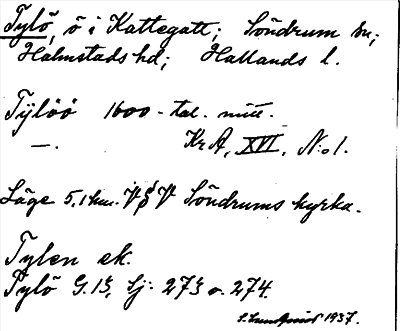 Tylö, ö i Kattegatt; Söndrum sn;
Halmstads hd; Hallands l.
Tÿlöö 1600-tal. mitt.
—. KrA, XVI, N:o 1.
Läge 5,1 km. V Söndrums kyrka.
Tylen ek.
Tylö G. 13, Lj: 273 o. 274.
1937.